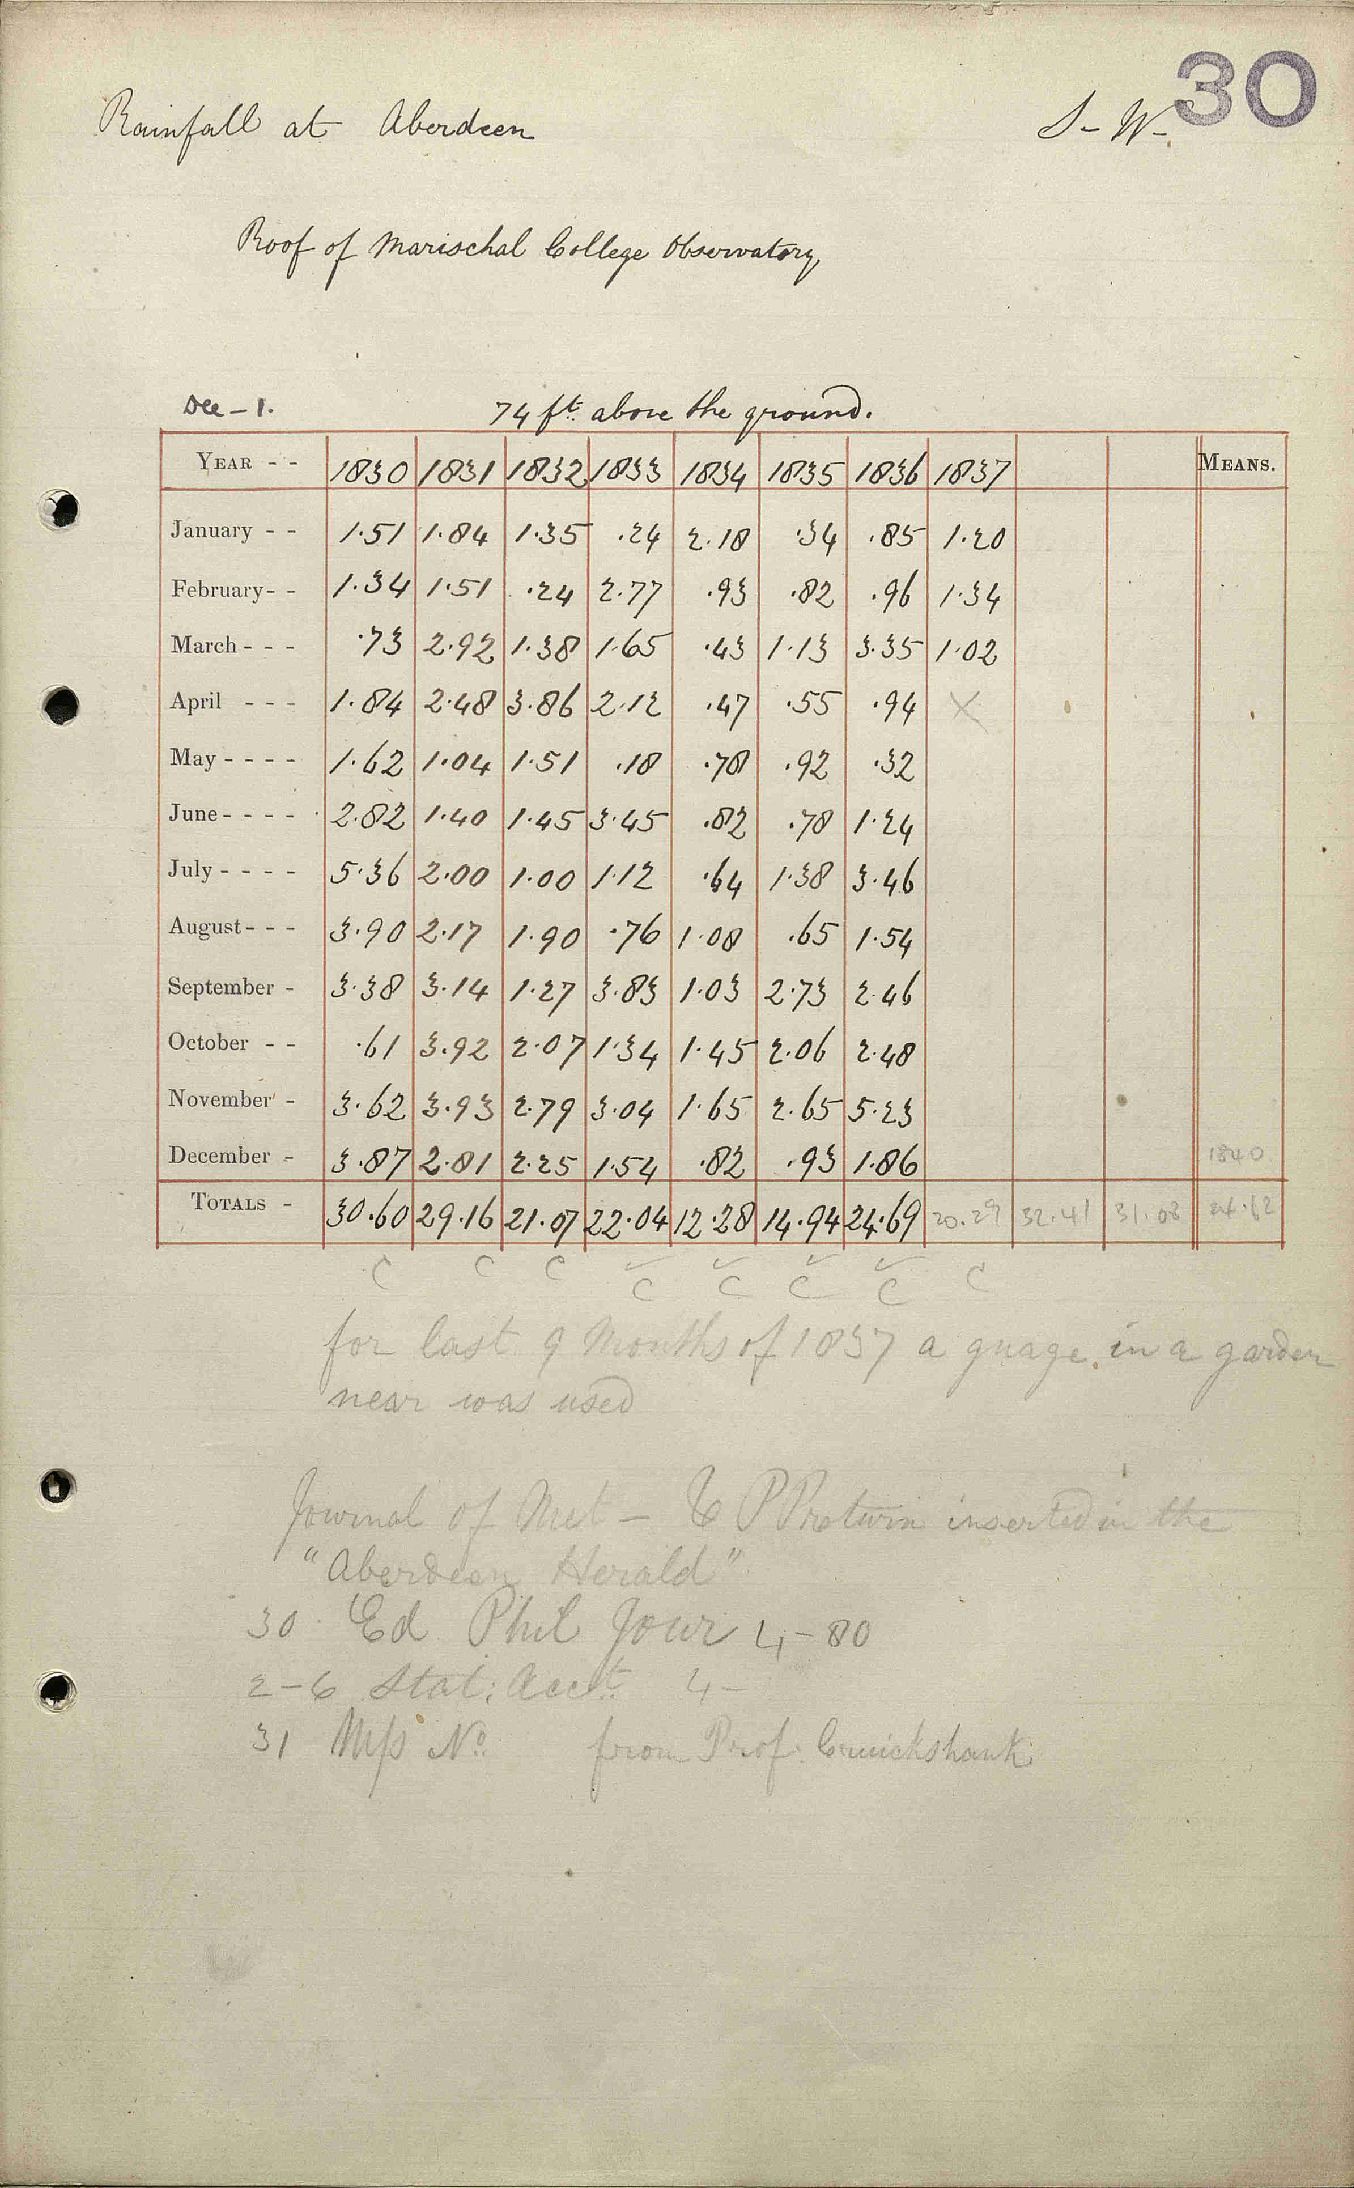 30
Rainfall at Aberdeen S-W-
Roof of Marischal College Observatory
Dec-1. 74 ft. above the ground.
YEAR - - 1830 1831 1832 1833 1834 1835 1836 1837 MEANS.
January - - 1.51 1.84 1.35 .24 2.18 .34 .85 1.20
February - - 1.34 1.51 .24 2.77 .93 .82 .96 1.34
March - - - .73 2.92 1.38 1.65 .43 1.13 3.35 1.02
April - - - 1.84 2.48 3.86 2.12 .47 .55 .94 X
May - - - - 1.62 1.04 1.51 .18 .78 .92 .32
June - - - - 2.82 1.40 1.45 3.45 .82 .78 1.24
July - - - - 5.36 2.00 1.00 1.12 .64 1.38 3.46
August - - - 3.90 2.17 1.90 .76 1.08 .65 1.54
September - 3.38 3.14 1.27 3.83 1.03 2.73 2.46
October - - .61 3.92 2.07 1.34 1.45 2.06 2.48
November - 3.62 3.93 2.79 3.04 1.65 2.65 5.23
December - 3.87 2.81 2.25 1.54 .82 .93 1.86 1840
TOTALS - 30.60 29.16 21.07 22.04 12.28 14.94 24.69 20.29 32.41 31.08 24.62
C C C C C C C C
for last 9 Months of 1837 a guage in a garden
near was used
Journal of Met - inserted in the
"Aberdeen Herald"
30 Ed Phil Jour 4-80
2-6 Stat: Acct. 4-
31 Mss No. from Prof. Cruickshank